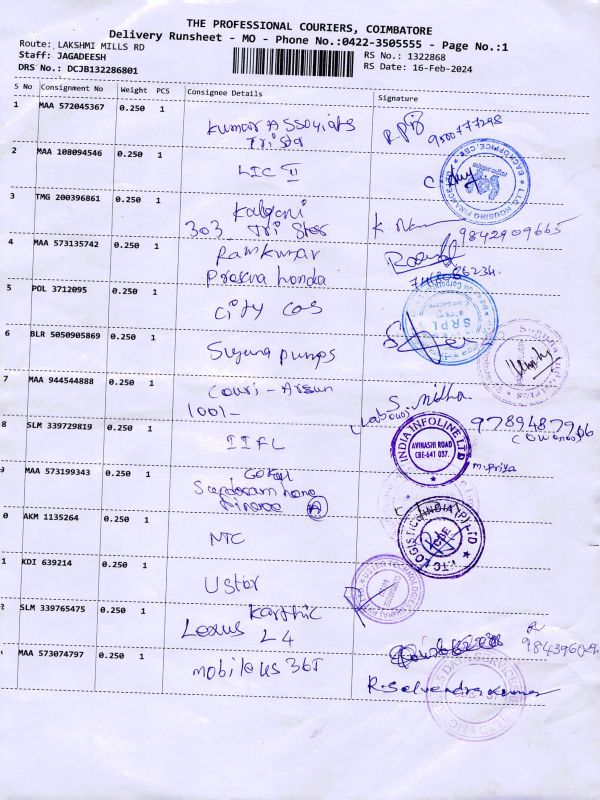 THE PROFESSIONAL COURIERS, COIMBATORE
Delivery Runsheet - MO - Phone No.:0422-3505555 - Page No.:1
Route: LAKSHMI MILLS RD
Staff: JAGADEESH
DRS No.: DCJB132286801
RS No.: 1322868
RS Date: 16-Feb-2024
S No Consignment No Weight PCS Consignee Details Signature
1 MAA 572045367 0.250 1
Kumar Associats
Trista
9500777298
2 MAA 108094546 0.250 1
LIC II
3 TMG 200396861 0.250 1
Kalyani
303 Tri Star
9842909665
4 MAA 573135742 0.250 1
Ramkumar
honda
5 POL 3712095 0.250 1
City Gas
SRPL
6 BLR 5050905869 0.250 1
Suguna pumps
7 MAA 944544888 0.250 1
Gouri - Arjun
1001-
S. Nidha
8 SLM 339729819 0.250 1
IIFL
INDIA INFOLINE LTD
AVINASHI ROAD
CBE-641 037.
M. Priya
MAA 573199343 0.250 1
Gokul
Finance A
0 AKM 1135264 0.250 1
NTC
NTC LOGISTICS INDIA (P) LTD
CBE
1 KDI 639214 0.250 1
Ustor
2 SLM 339765475 0.250 1
Karthic
Lexus L4
MAA 573074797 0.250 1
mobileus 365
R. Selvendra Kumar